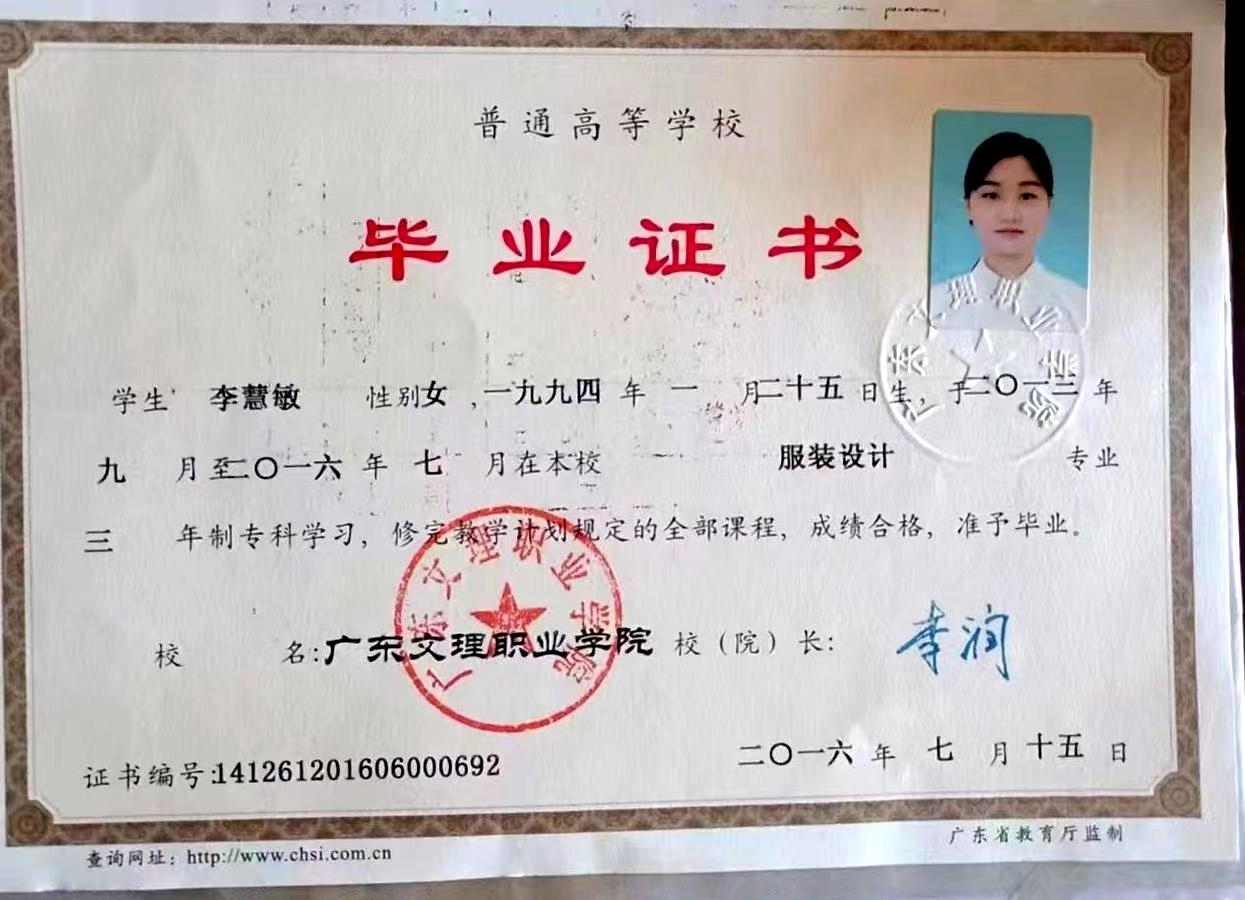 普通高等学校
毕业证书
学生 李慧敏 性别女，一九九四年一月二十五日生，于二〇一三年
九月至二〇一六年七月在本校 服装设计 专业
三年制专科学习，修完教学计划规定的全部课程，成绩合格，准予毕业。
校 名：广东文理职业学院 校（院）长：李润
广东文理职业学院
广东文理职业学院
证书编号：141261201606000692 二〇一六年七月十五日
查询网址：http://www.chsi.com.cn 广东省教育厅监制